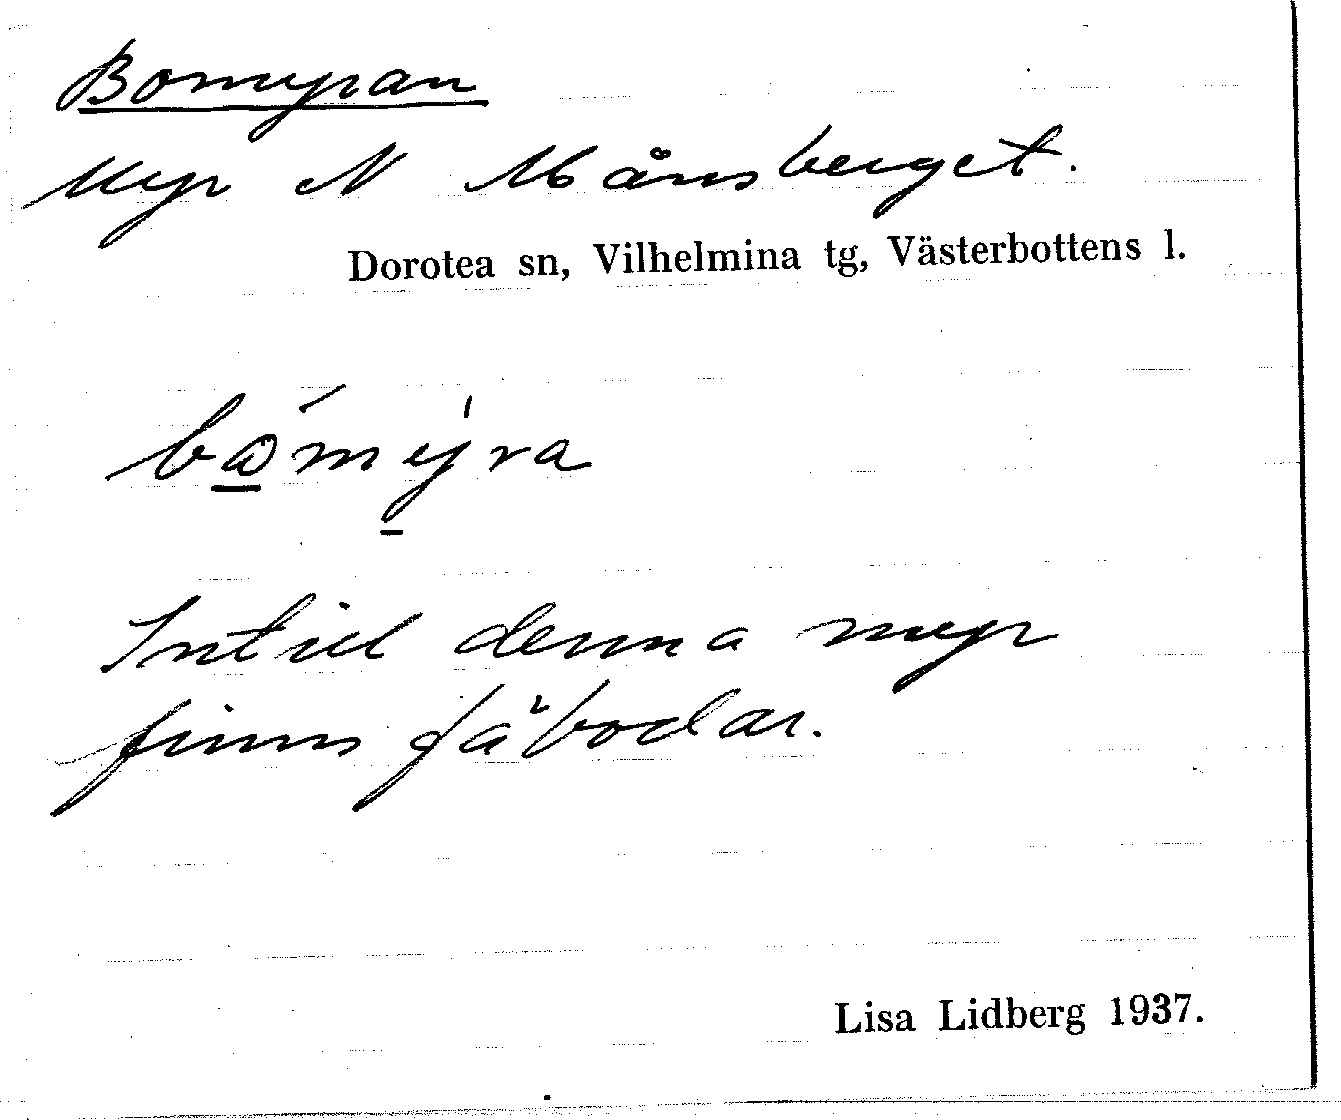 Bomyran
Myr N Månsberget.
Dorotea sn, Vilhelmina tg, Västerbottens l.
bɷ̲́my̲̍ra
Intill denna myr
finns fäbodar.
Lisa Lidberg 1937.